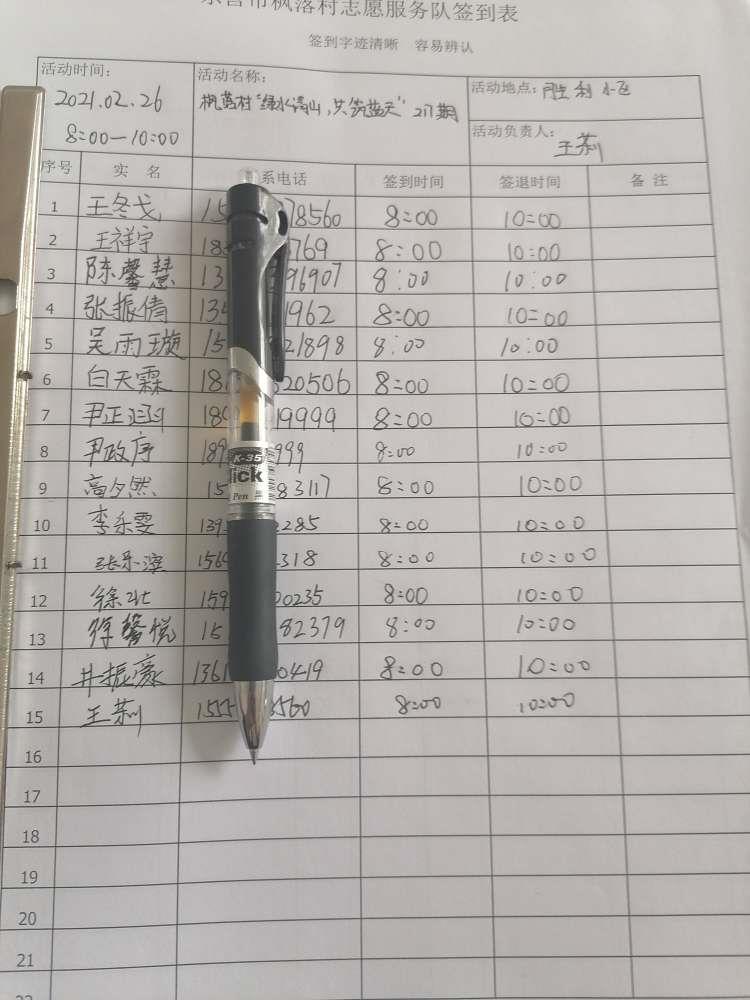 东营市枫落村志愿服务队签到表
签到字迹清晰 容易辨认
活动时间: 2021.02.26 8:00—10:00
活动名称: 枫落村"绿水青山,共筑蓝天" 217期
活动地点: 胜利小区
活动负责人: 王莉
序号 实 名 系电话 签到时间 签退时间 备 注
1 王冬戈 15 78560 8:00 10:00
2 王祥宇 18 769 8:00 10:00
3 陈馨慧 13 96907 8:00 10:00
4 张振倩 13 1962 8:00 10:00
5 吴雨璇 15 21898 8:00 10:00
6 白天霖 18 20506 8:00 10:00
7 尹正 18 19999 8:00 10:00
8 尹政序 189 999 8:00 10:00
9 高夕然 15 83117 8:00 10:00
10 李乐雯 139 285 8:00 10:00
11 张乐滨 156 318 8:00 10:00
12 徐 159 00235 8:00 10:00
13 徐馨悦 15 82379 8:00 10:00
14 井振豪 1361 0419 8:00 10:00
15 王莉 1555 8560 8:00 10:00
16
17
18
19
20
21
K-35
lick
Pen